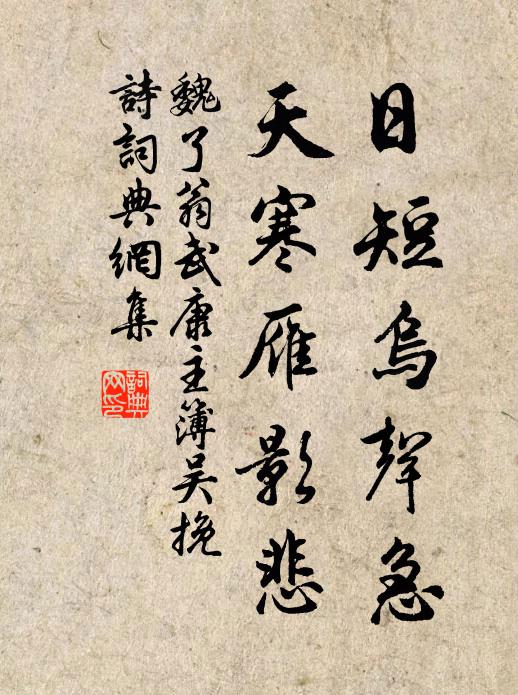 日短烏聲急
天寒雁影悲
魏了翁武康主簿吴挽
詩詞典網集
詞典網印